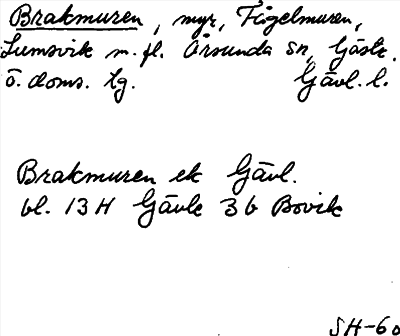 Brakmuren, myr, Fågelmuren,
Lumsvik m. fl. Årsunda sn, Gästr.
ö. doms. tg. Gävl. l.
Brakmuren ek Gävl.
bl. 13 H Gävle 3 b Bovik
SH-60